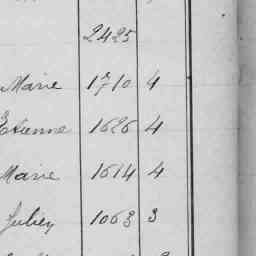 2425
Marie 1710 4
Etienne 1626 4
Marie 1614 4
Julien 1063 3